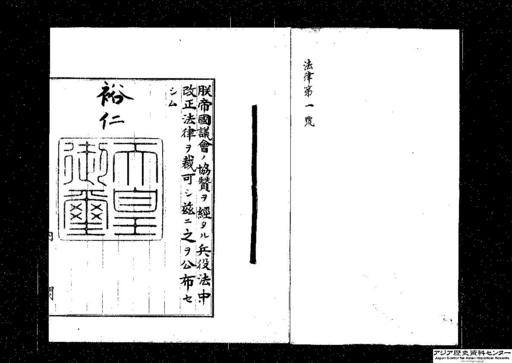 法律第一號
朕帝國議會ノ協贊ヲ經タル兵役法中
改正法律ヲ裁可シ茲ニ之ヲ公布セ
シム
裕仁
天皇
御璽
アジア歴史資料センター
Japan Center for Asian Historical Records